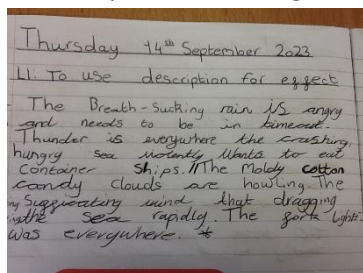 Thursday 14th September 2023
LI: To use description for effect
The Breath-Sucking rain is angry
and needs to be in timeout.
Thunder is everywhere the crashing,
hungry sea violently wants to eat
container ships.//The Moldy cotton
candy clouds are howling. The
Suggicating wind that dragging
the sea rapidly. The fork lights
was everywhere. *